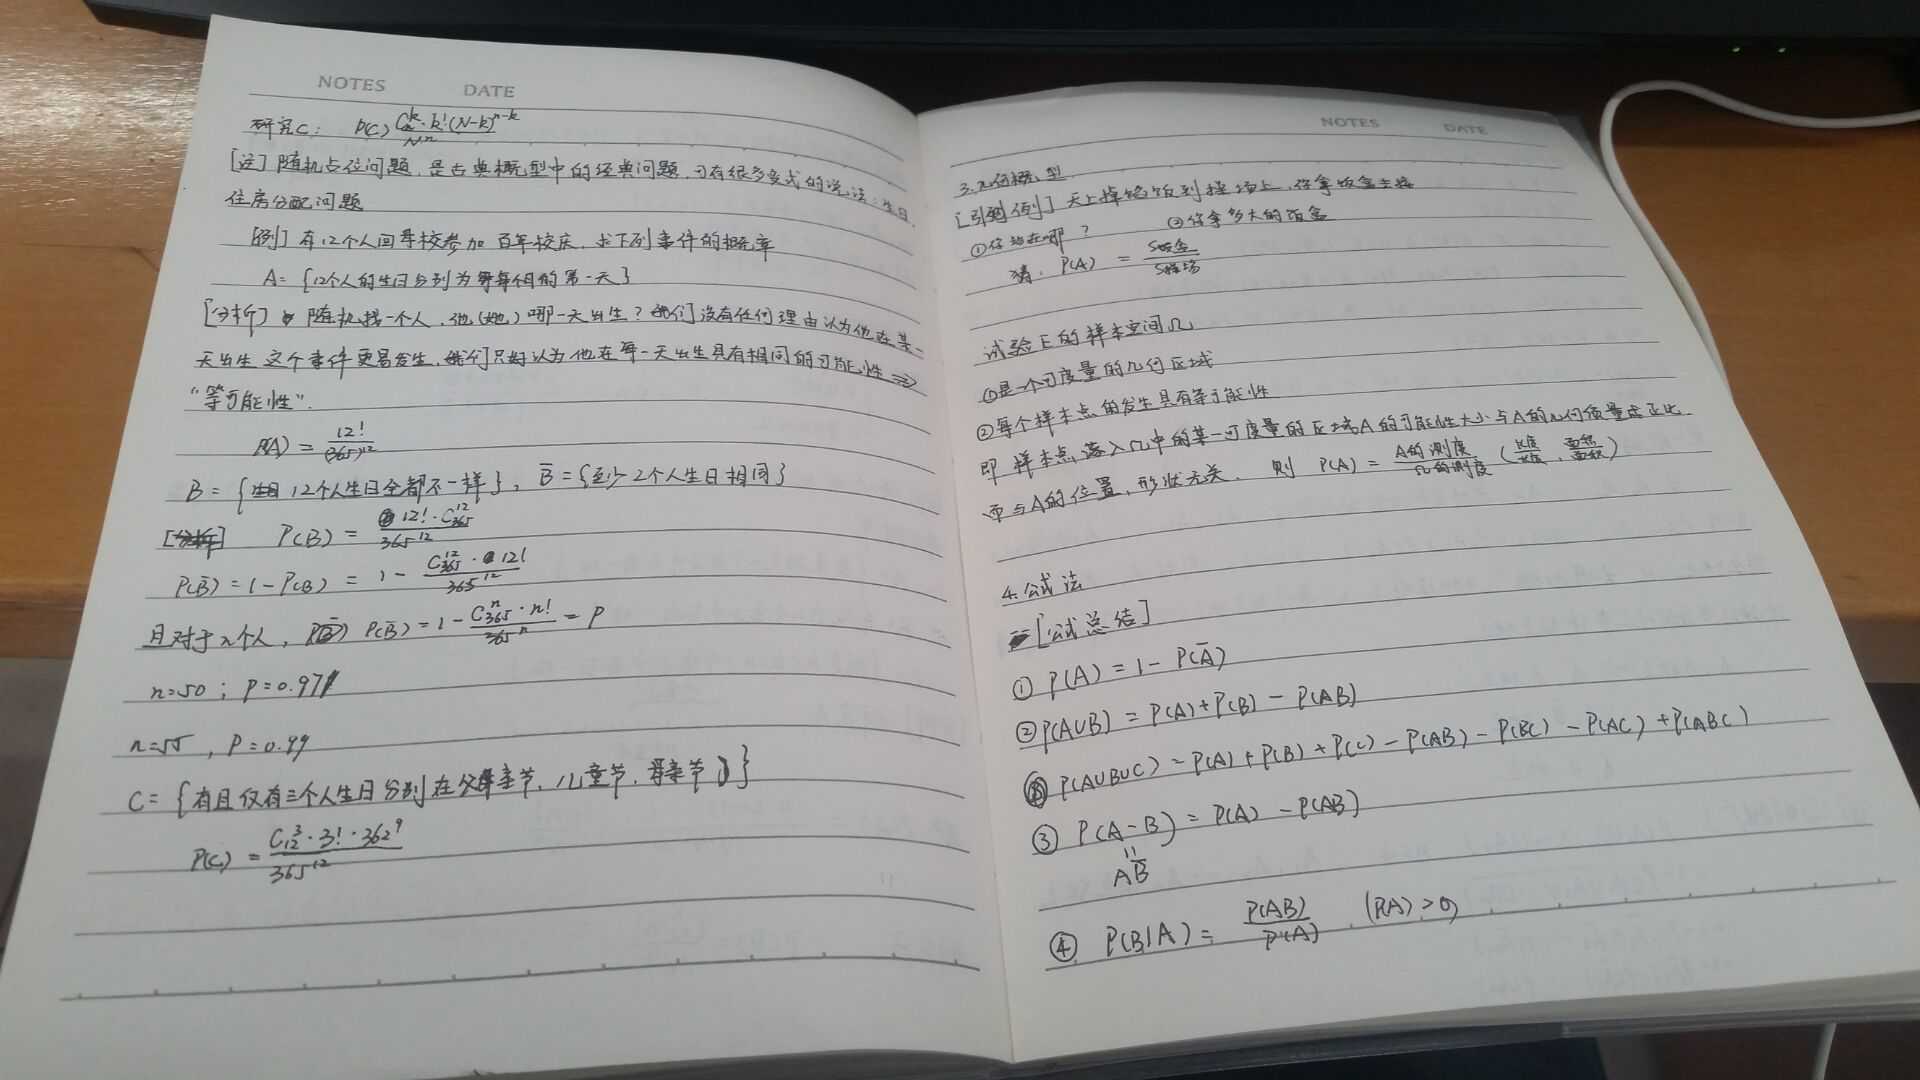 NOTES DATE
研究C: P(C) C_n^k·k!(N-k)^{n-k} / N^n
[注] 随机占位问题,是古典概型中的经典问题,可有很多变式的说法:生日,
住房分配问题
[例] 有12个人回母校参加百年校庆,求下列事件的概率
A={12个人的生日分别为每月的第一天}
[分析] 随机找一个人,他(她)哪一天出生?我们没有任何理由认为他在某一
天出生 这个事件更易发生,我们只好认为他在每一天出生具有相同的可能性 ⇒
“等可能性”.
P(A) = 12! / (365)^12
B={12个人生日全都不一样}, B̄={至少2个人生日相同}
[分析] P(B) = 12!·C_365^12 / 365^12
P(B̄)=1-P(B) = 1 - C_365^12·12! / 365^12
且对于n个人, P(B̄)=1- C_365^n·n! / 365^n = P
n=50; P=0.97
n=55, P=0.99
C={有且仅有三个人生日分别在父亲节,儿童节,母亲节}
P(C) = C_12^3·3!·362^9 / 365^12
NOTES DATE
3.几何概型
[引例] 天上掉馅饼到操场上,你拿饭盒去接
①你站在哪? ②你拿多大的饭盒
猜, P(A) = S饭盒 / S操场
试验E的样本空间Ω
①是一个可度量的几何区域
②每个样本点的发生具有等可能性
即 样本点落入Ω中的某一可度量的区域A的可能性大小与A的几何度量成正比
而与A的位置,形状无关. 则 P(A) = A的测度 / Ω的测度 (长度/长度, 面积/面积)
4.公式法
[公式总结]
① P(A)=1-P(Ā)
② P(A∪B)=P(A)+P(B)-P(AB)
P(A∪B∪C)=P(A)+P(B)+P(C)-P(AB)-P(BC)-P(AC)+P(ABC)
③ P(A-B)=P(A)-P(AB)
=
AB̄
④ P(B|A) = P(AB) / P(A), (P(A)>0)